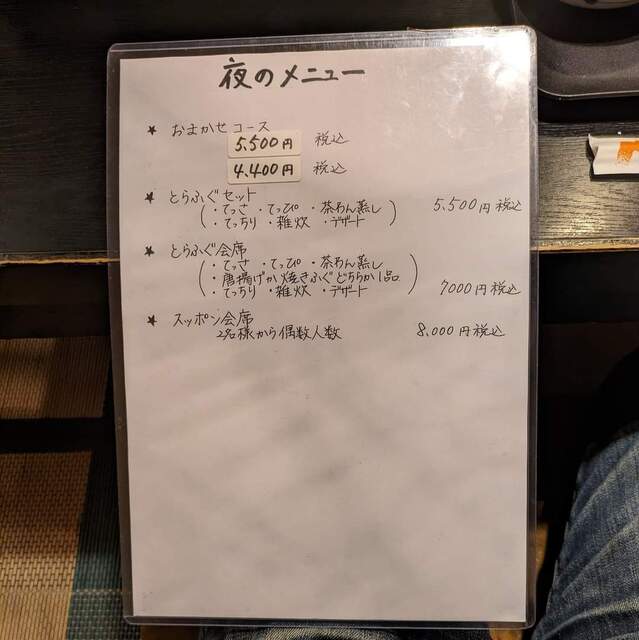 夜のメニュー
★ おまかせコース
5.500円 税込
4.400円 税込
★ とらふぐセット 5.500円税込
(・てっさ ・てっぴ ・茶わん蒸し
・てっちり ・雑炊 ・デザート)
★ とらふぐ会席
(・てっさ ・てっぴ ・茶わん蒸し
・唐揚げか焼きふぐどちらか1品
・てっちり ・雑炊 ・デザート) 7000円税込
★ スッポン会席
2名様から偶数人数 8.000円税込